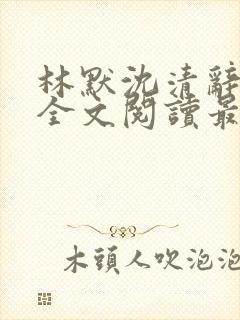 林默沈清辭
全文閱讀最
木頭人吹泡泡